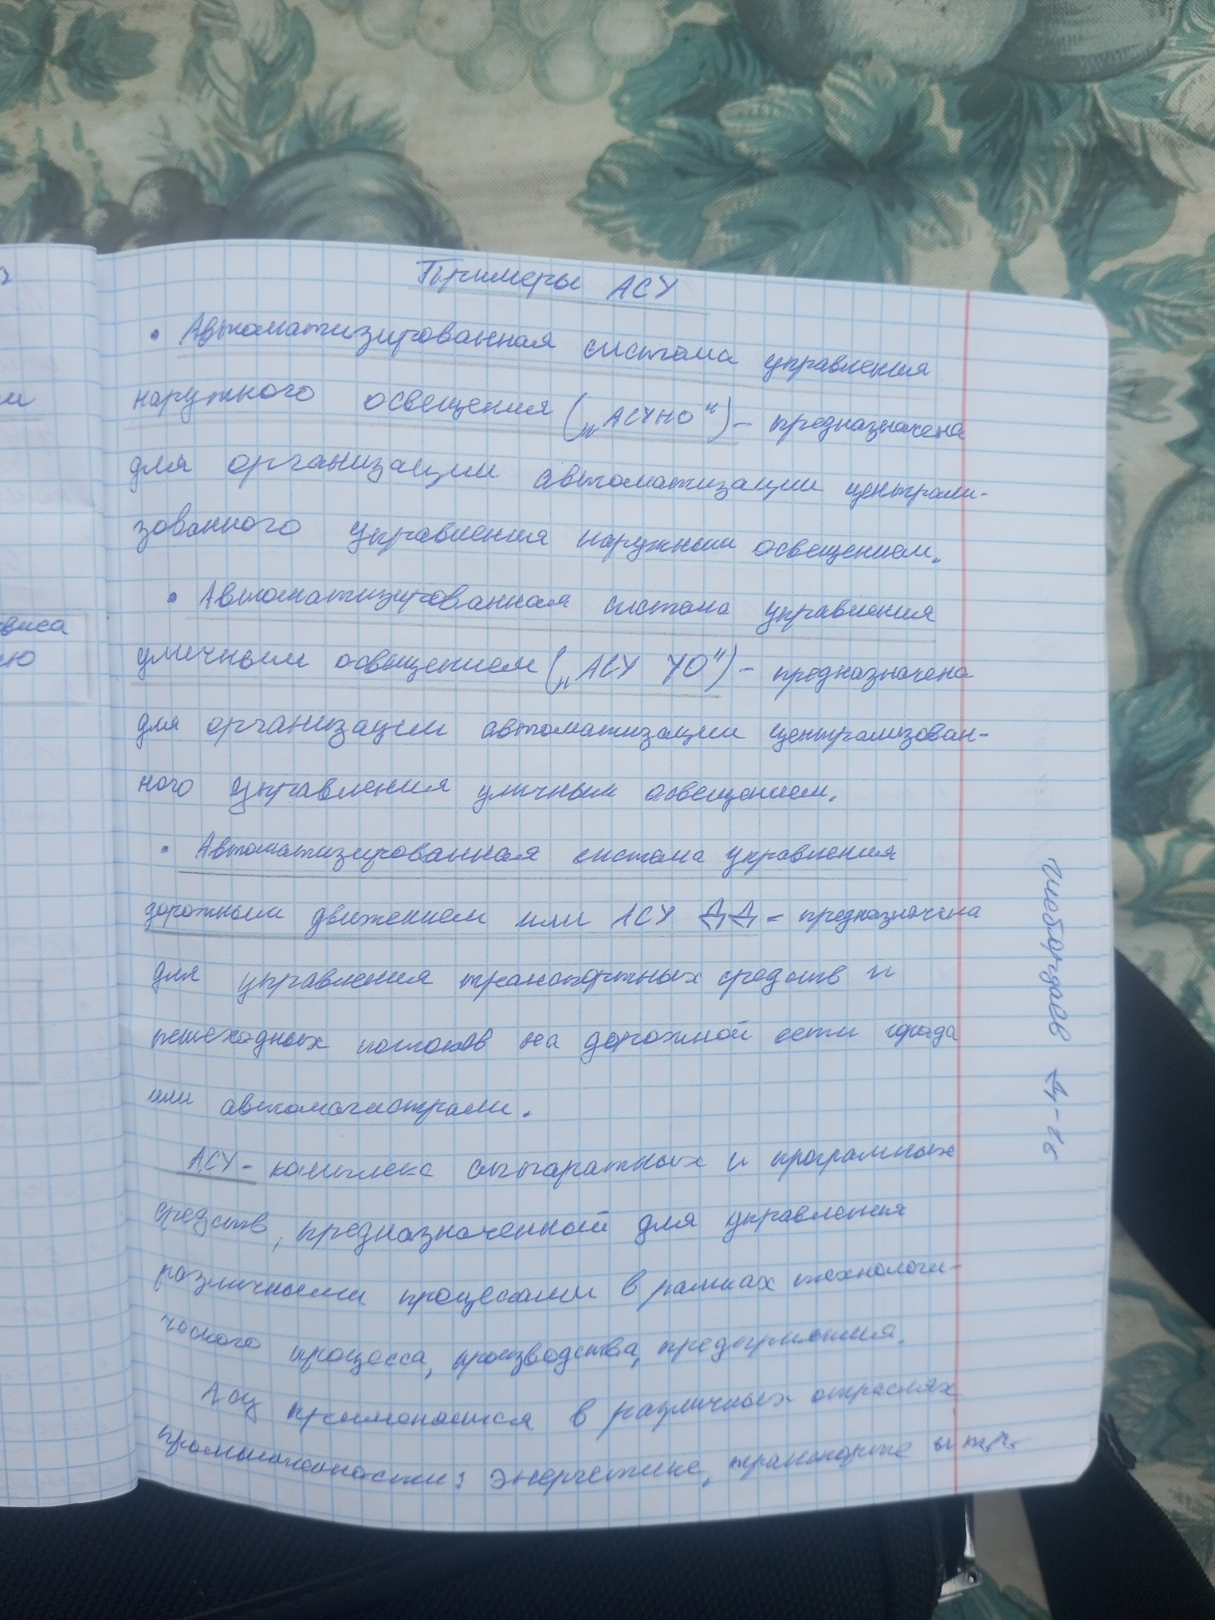 Примеры АСУ
• Автоматизированная система управления
наружного освещения („АСУНО“) – предназначена
для организации автоматизации централи-
зованного управления наружным освещением.
• Автоматизированная система управления
уличным освещением („АСУ УО“) – предназначена
для организации автоматизации централизован-
ного управления уличным освещением.
• Автоматизированная система управления
дорожным движением или АСУ ДД – предназначена
для управления транспортных средств и
пешеходных потоков на дорожной сети города
или автомагистрали.
АСУ – комплекс аппаратных и програмных
средств, предназначенной для управления
различными процессами в рамках технологи-
ческого процесса, производства, предприятия.
Асу применяется в различных отраслях
промышленности: энергетике, транспорте и т.п.
Д-16
виса
ею